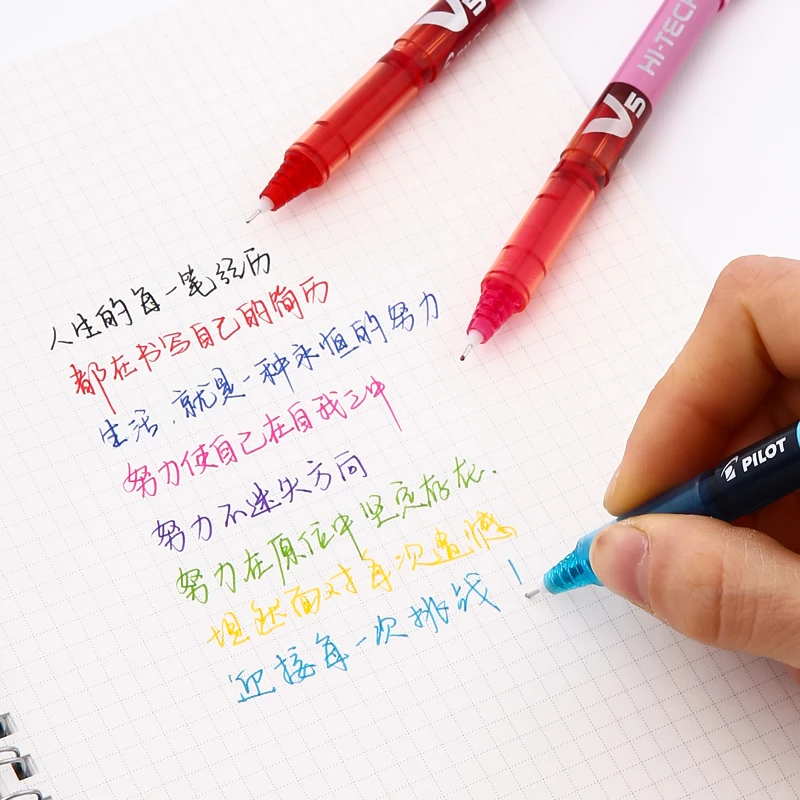 V5
HI-TECH
V5
人生的每一笔经历
都在书写自己的简历
生活,就是一种永恒的努力
努力使自己在自我之中
努力不迷失方向
努力在原位中坚定存在.
坦然面对每次遗憾
迎接每一次挑战!
PILOT